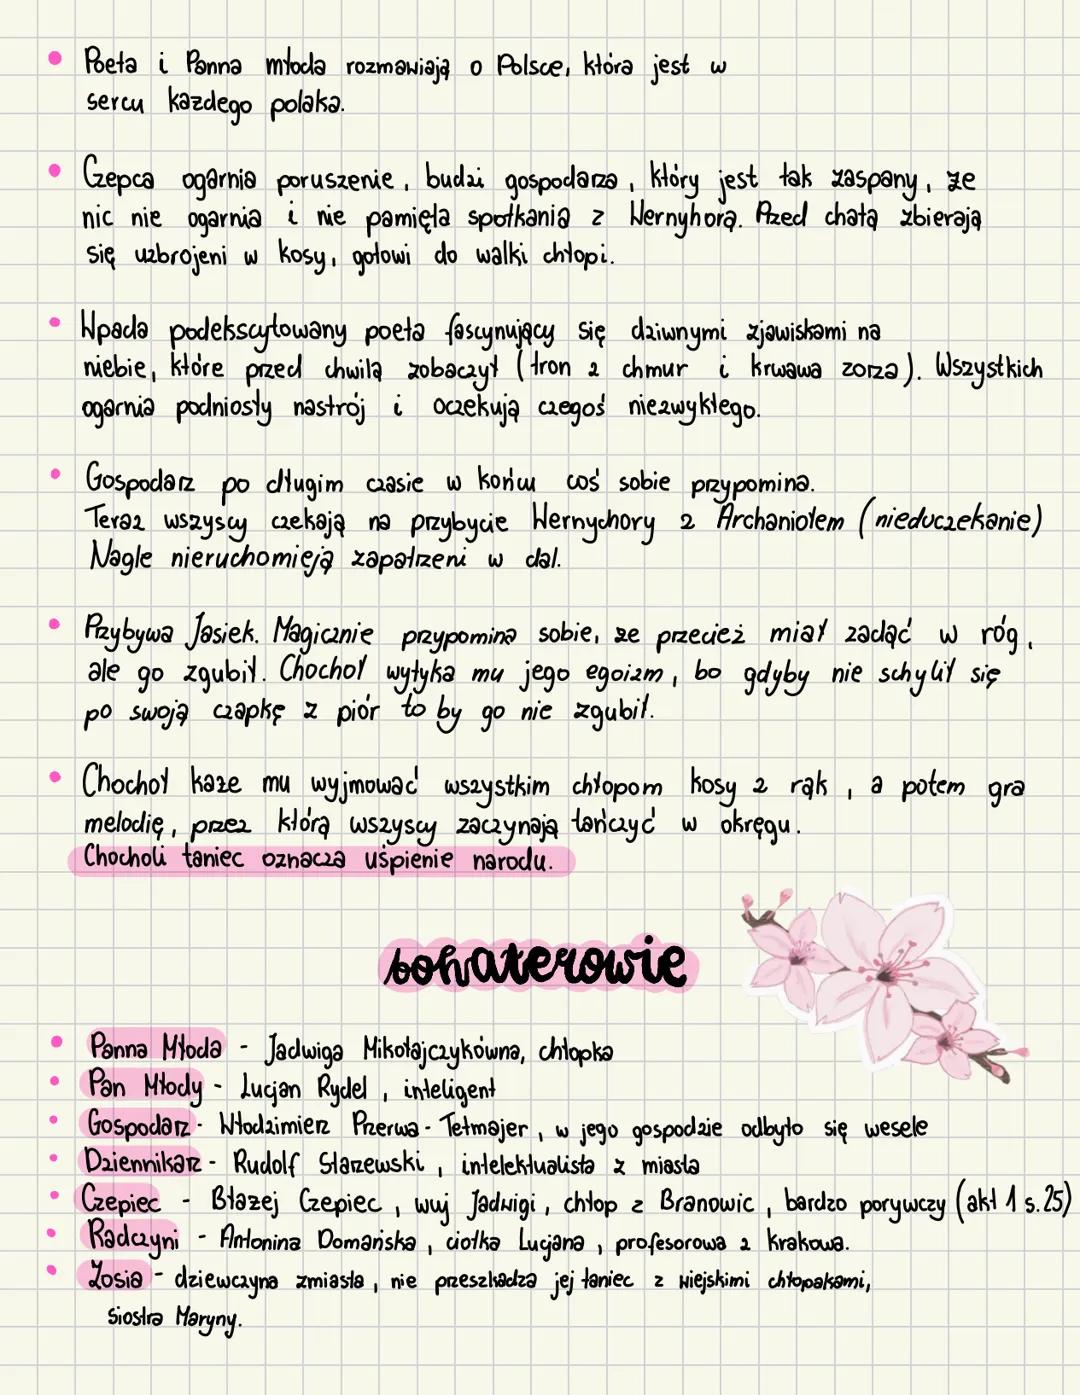 Poeta i Panna młoda rozmawiają o Polsce, która jest w
sercu każdego polaka.
Czepca ogarnia poruszenie, budzi gospodarza, który jest tak zaspany, że
nic nie ogarnia i nie pamięta spotkania z Wernyhorą. Przed chatą zbierają
się uzbrojeni w kosy, gotowi do walki chłopi.
Wpada podekscytowany poeta fascynujący się dziwnymi zjawiskami na
niebie, które przed chwilą zobaczył (tron z chmur i krwawa zorza). Wszystkich
ogarnia podniosły nastrój i oczekują czegoś niezwykłego.
Gospodarz po długim czasie w końcu coś sobie przypomina.
Teraz wszyscy czekają na przybycie Wernychory z Archaniołem (nieduczekanie)
Nagle nieruchomieją zapatrzeni w dal.
Przybywa Jasiek. Magicznie przypomina sobie, że przecież miał zadąć w róg,
ale go zgubił. Chochoł wytyka mu jego egoizm, bo gdyby nie schylił się
po swoją czapkę z piór to by go nie zgubił.
Chochoł każe mu wyjmować wszystkim chłopom kosy z rąk, a potem gra
melodię, przez którą wszyscy zaczynają tańczyć w okręgu.
Chocholi taniec oznacza uśpienie narodu.
bohaterowie
Panna Młoda - Jadwiga Mikołajczykówna, chłopka
Pan Młody - Lucjan Rydel, inteligent
Gospodarz - Włodzimierz Przerwa-Tetmajer, w jego gospodzie odbyło się wesele
Dziennikarz - Rudolf Starzewski, intelektualista z miasta
Czepiec - Błażej Czepiec, wuj Jadwigi, chłop z Branowic, bardzo porywczy (akt 1 s.25)
Radczyni - Antonina Domańska, ciotka Lucjana, profesorowa z krakowa.
Zosia - dziewczyna zmiasta, nie przeszkadza jej taniec z wiejskimi chłopakami,
siostra Maryny.